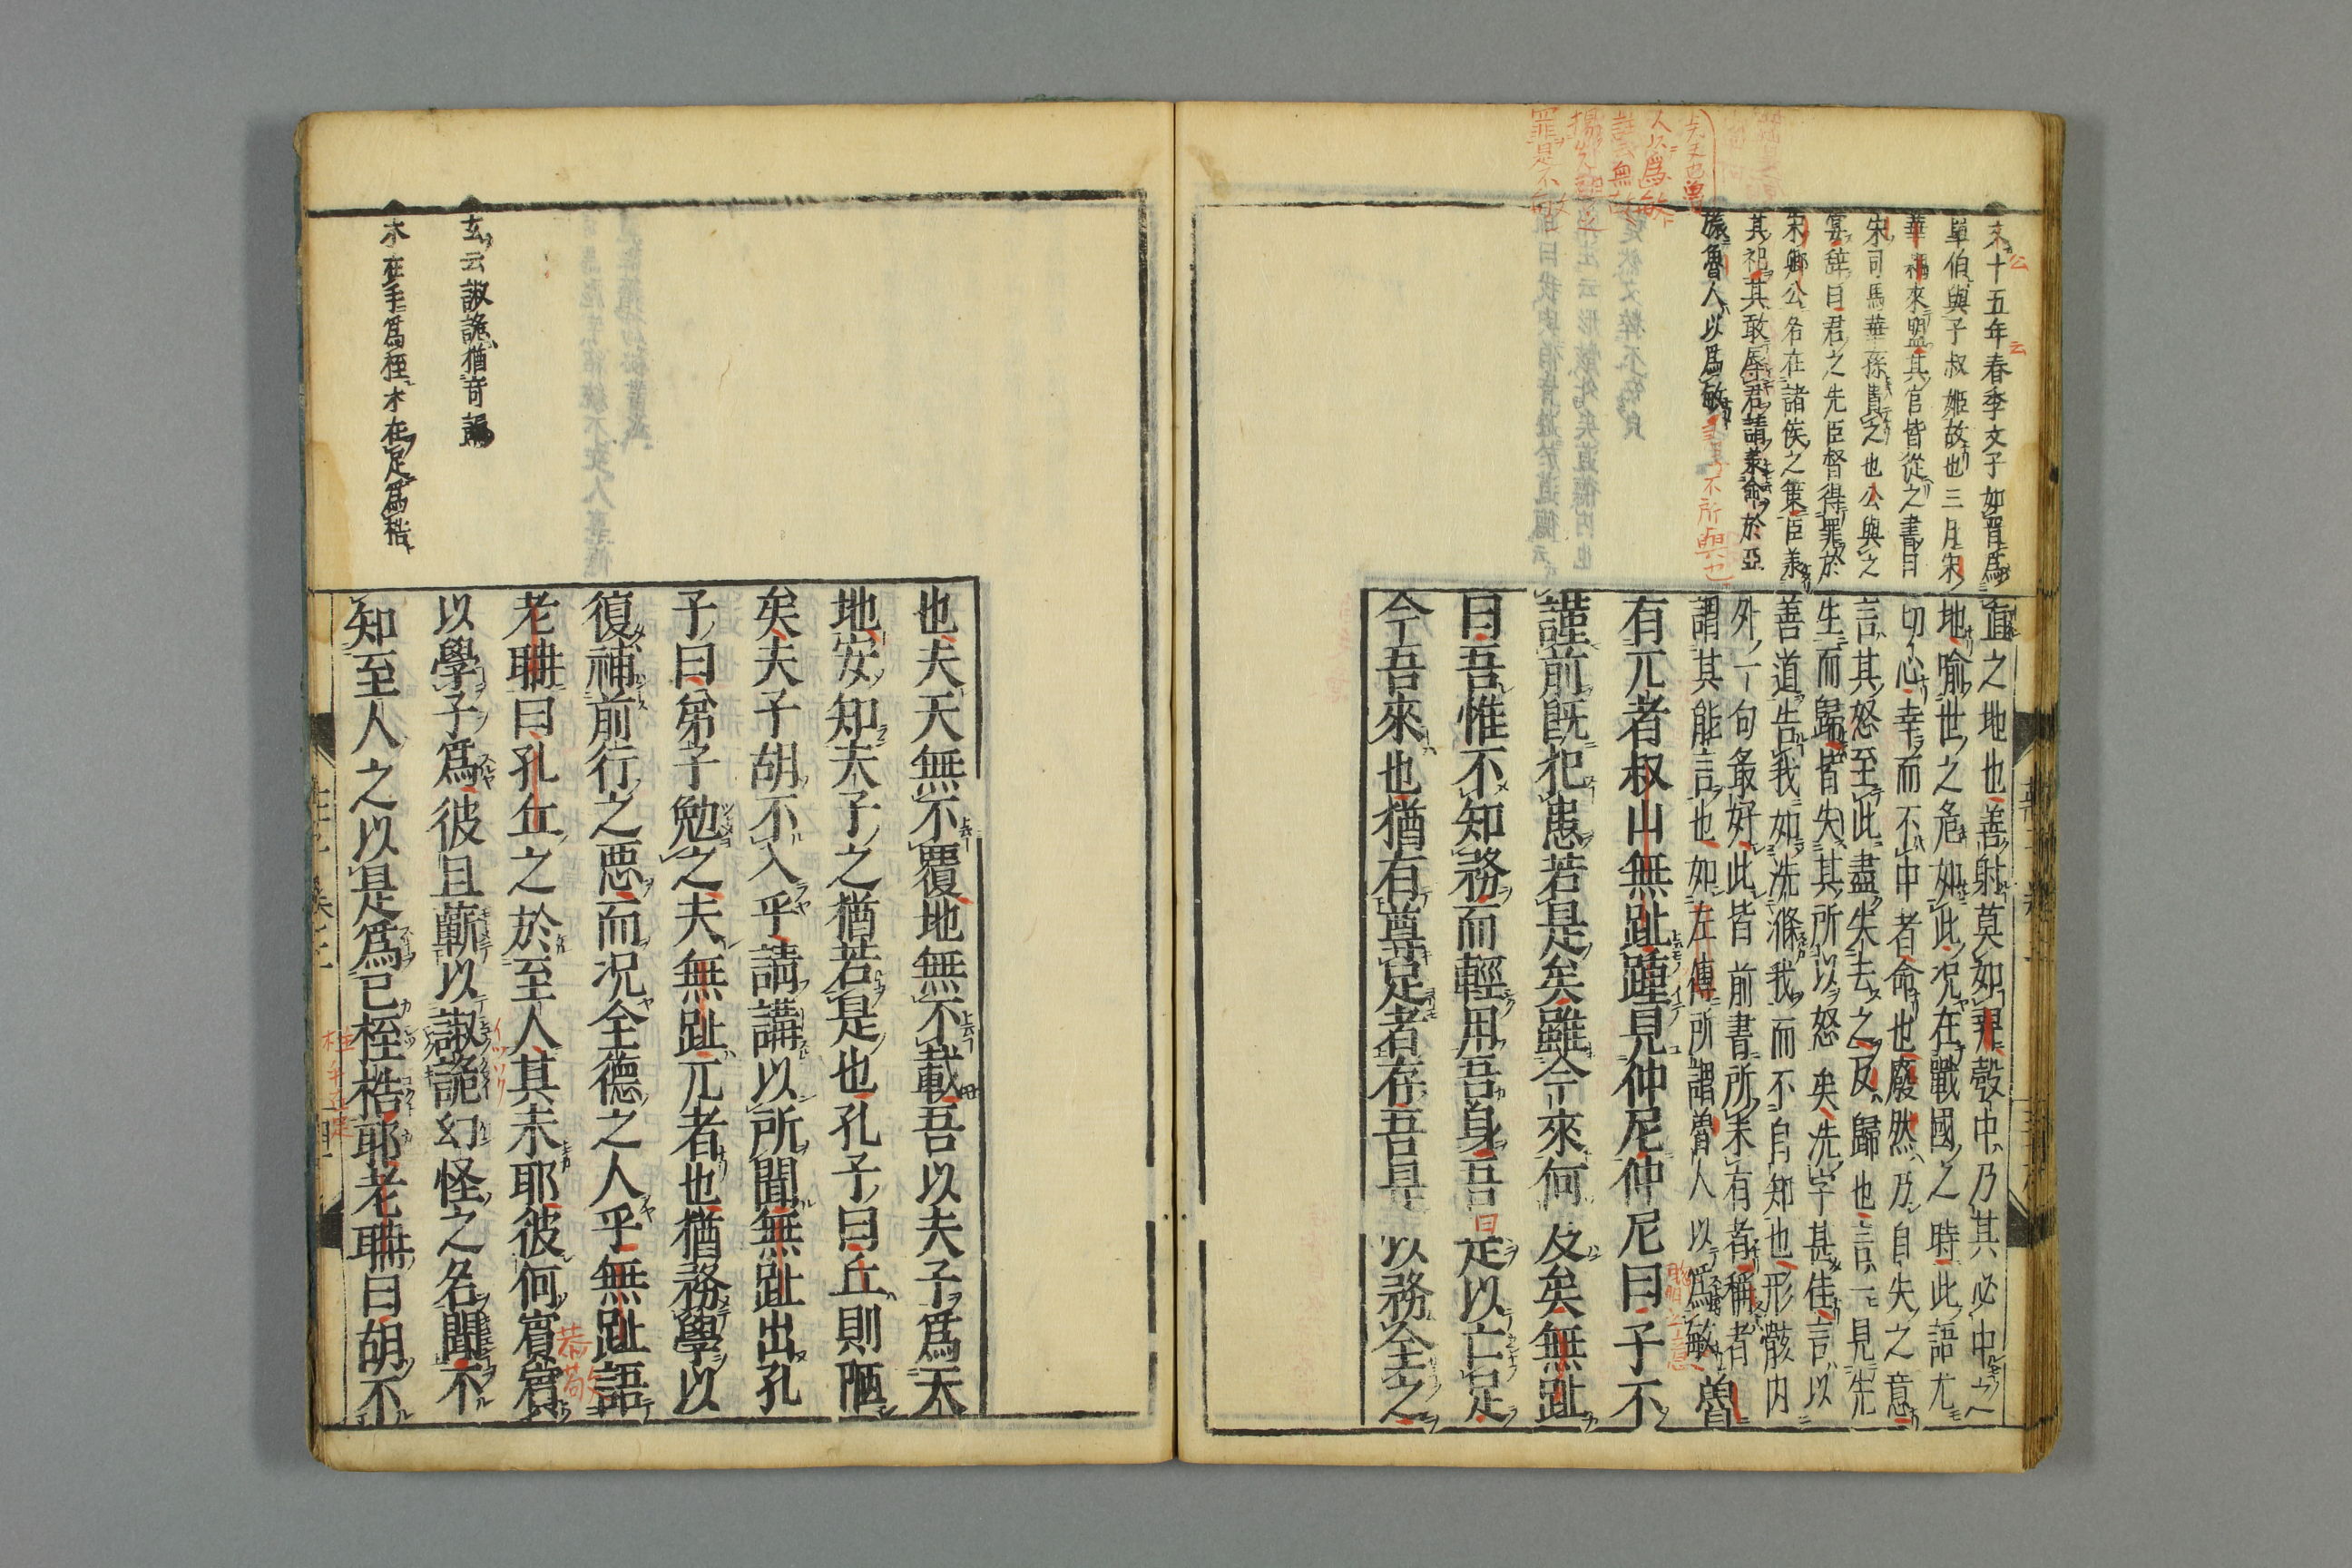 文十五年春季文子如晋爲
單伯與子叔姬故也三月宋
華耦來盟其官皆從之書曰
宋司馬華孫貴之也公與之
宴辞曰君之先臣督得罪於
宋殤公名在諸侯之策臣承
其祀其敢辱君請承命於亞
旅魯人以爲敏
直之地也善射莫如羿彀中乃其必中之
地喻世之危如此况在戰國之時此語尤
切心幸而不中者命也廢然乃自失之意
言其怒至此盡失去之反歸也言一見先
生而歸皆失其所以怒矣洗字甚佳言以
善道告我如洗滌我而不自知也形骸内
外一句最好此皆前書所未有者稱者
謂其能言也如左傳所謂魯人以爲敏魯
有兀者叔山無趾踵見仲尼仲尼曰子不
謹前既犯患若是矣雖今來何及矣無趾
曰吾惟不知務而輕用吾身吾是以亡足
今吾來也猶有尊足者存吾是以務全之
也夫天無不覆地無不載吾以夫子爲天
地安知夫子之猶若是也孔子曰丘則陋
矣夫子胡不入乎請講以所聞無趾出孔
子曰弟子勉之夫無趾兀者也猶務學以
復補前行之惡而况全德之人乎無趾語
老聃曰孔丘之於至人其未耶彼何賓賓
以學子爲彼且蘄以諔詭幻怪之名聞不
知至人之以是爲已桎梏耶老聃曰胡不
玄云諔詭猶奇譎
木在手爲桎木在足爲梏